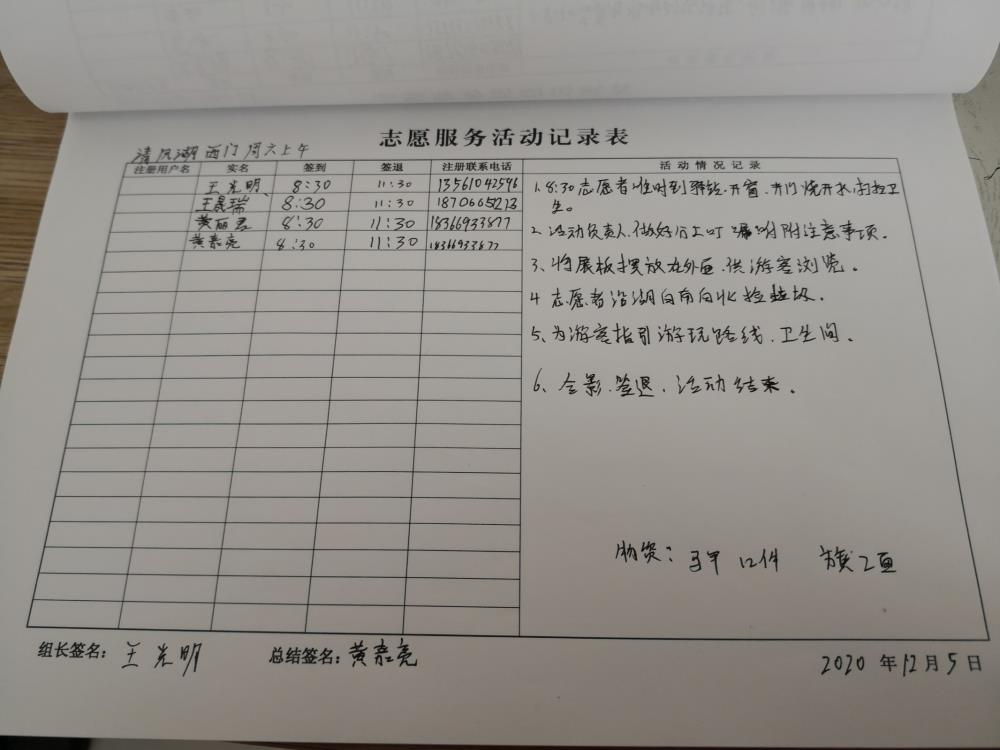 志愿服务活动记录表
清风湖西门周六上午
注册用户名 实名 签到 签退 注册联系电话 活动情况记录
王光明 8:30 11:30 13561042596
王晨瑞 8:30 11:30 18706665213
黄丽君 8:30 11:30 18366933877
黄嘉亮 8:30 11:30 18366933877
1.8:30志愿者准时到驿站.开窗.开门烧开水,打扫卫
生。
2、活动负责人做好分工叮嘱附注意事项。
3、将展板摆放在外面.供游客浏览。
4 志愿者沿湖自南向北捡垃圾.
5、为游客指引游玩路线.卫生间。
6、合影.签退.活动结束。
物资: 马甲 12件 旗2面
组长签名: 王光明 总结签名: 黄嘉亮 2020年12月5日